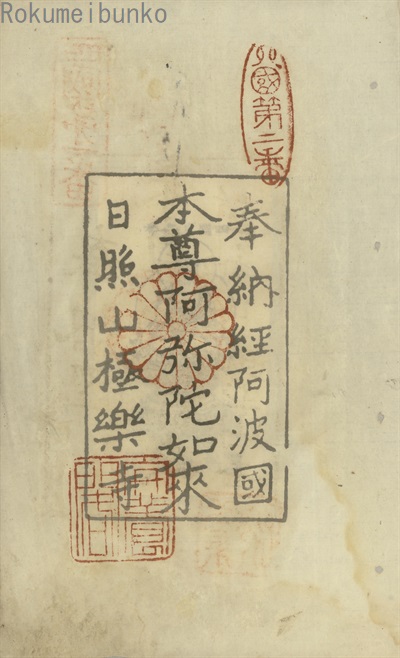 Rokumeibunko
四國第二番
奉納經阿波國
本尊阿弥陀如來
日照山極樂寺